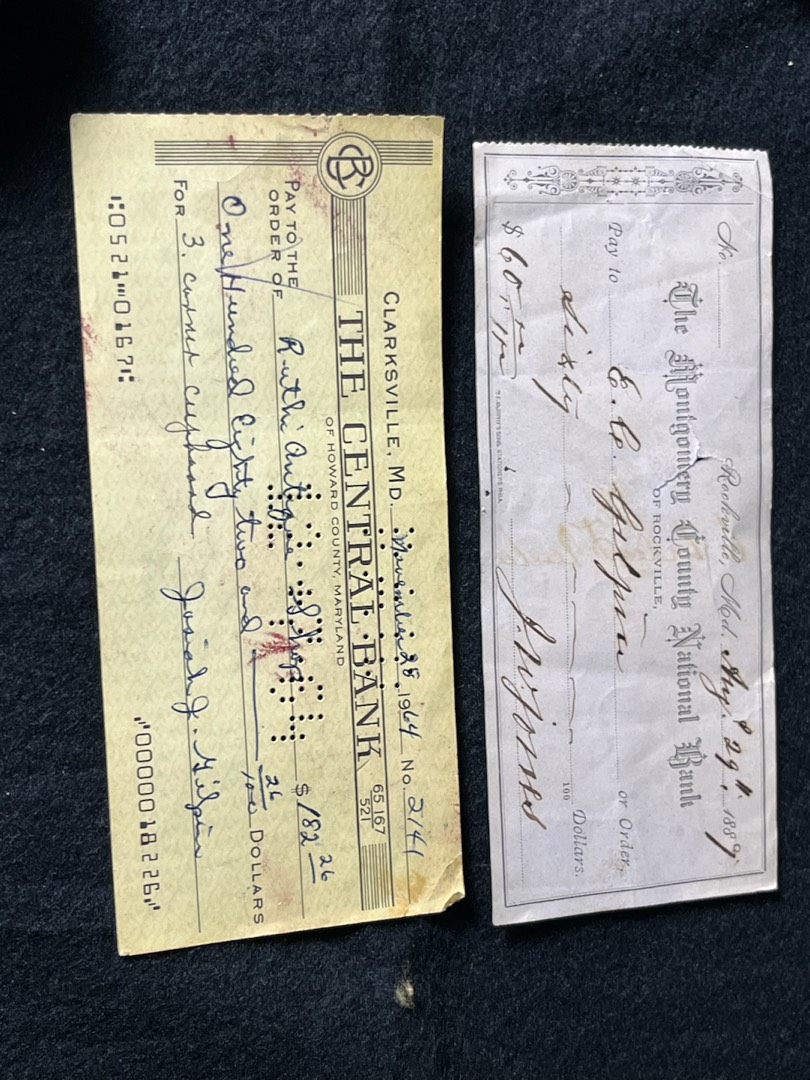 CB
CLARKSVILLE, MD. November 28 1964 No. 2141
THE CENTRAL BANK 65 167
521
OF HOWARD COUNTY, MARYLAND
PAY TO THE
ORDER OF Ruth's Antique Shop $ 182 26
One Hundred Eighty two and 26/100 DOLLARS
FOR 3. corner cupboard Josiah J. Gilpin
⑆0521⑉0167⑆ ⑈0000018226⑈
No. Rockville, Md. Aug. 29th, 1889
The Montgomery County National Bank
OF ROCKVILLE,
Pay to E. C. Gilpin or Order,
Sixty 100 Dollars.
$ 60 J. W. Jones